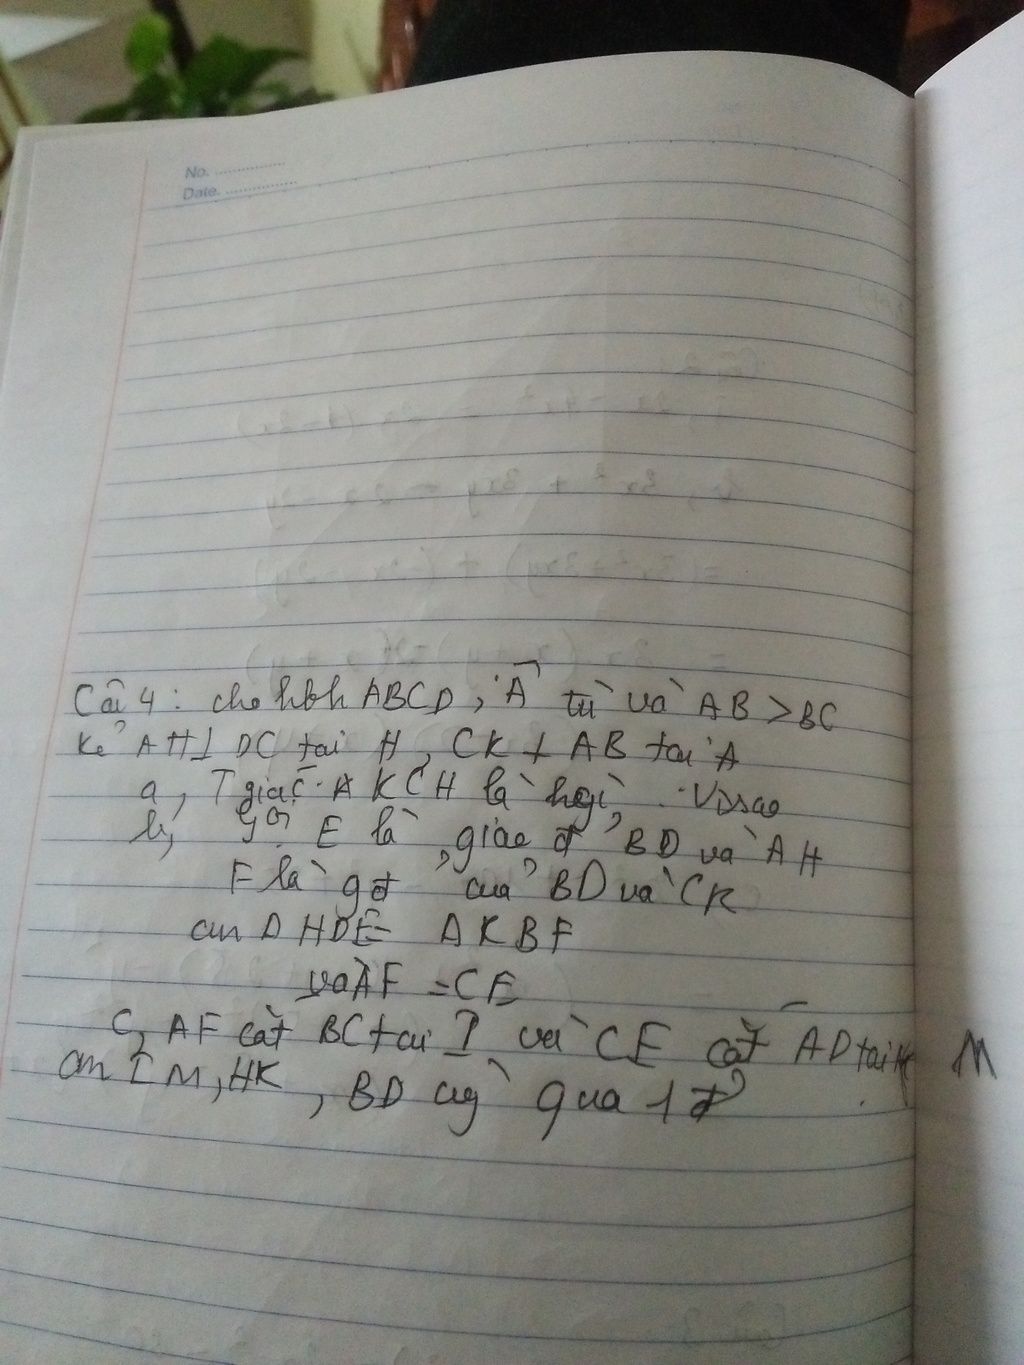 No. ................
Date. ................
Câu 4 : cho hbh ABCD, Â tù và AB > BC
Kẻ AH ⊥ DC tại H, CK ⊥ AB tại A
a, Tgiác AKCH là hgì, Vì sao
b, gọi E là giao đ BD và AH
F là gđ của BD và CK
cm Δ HDE = Δ KBF
và AF = CE
c, AF cắt BC tại I và CE cắt AD tại M
cm IM, HK, BD cùng qua 1 đ